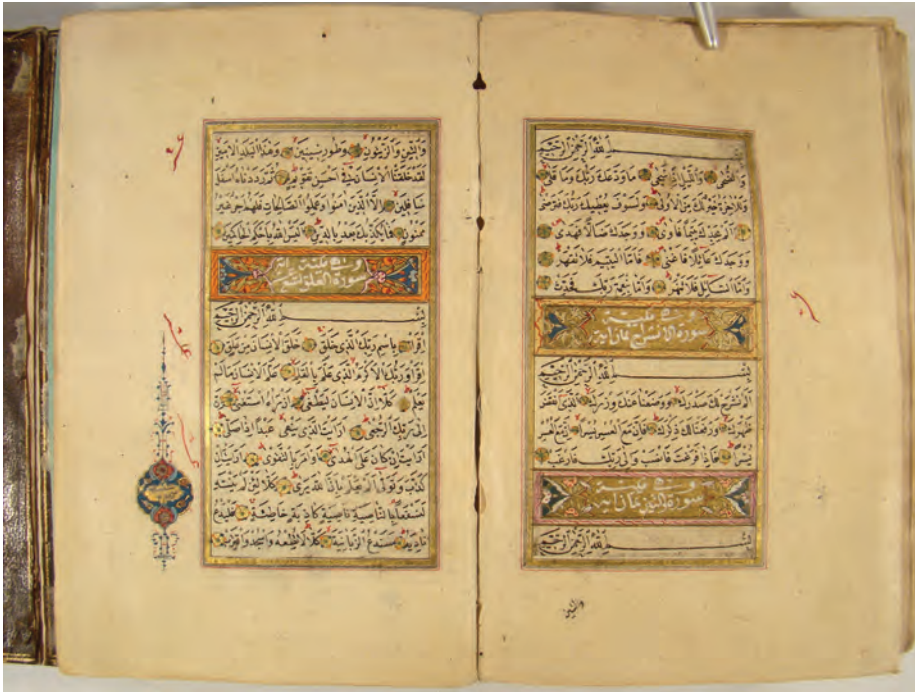 بسم الله الرحمن الرحيم
والضحى والليل إذا سجى ما ودعك ربك وما قلى
وللآخرة خير لك من الأولى ولسوف يعطيك ربك فترضى
ألم يجدك يتيما فآوى ووجدك ضالا فهدى
ووجدك عائلا فأغنى فأما اليتيم فلا تقهر
وأما السائل فلا تنهر وأما بنعمة ربك فحدث
وهي مكية
سورة الانشراح ثمان اية
بسم الله الرحمن الرحيم
ألم نشرح لك صدرك ووضعنا عنك وزرك الذي أنقض
ظهرك ورفعنا لك ذكرك فإن مع العسر يسرا إن مع العسر
يسرا فإذا فرغت فانصب وإلى ربك فارغب
وهي مكية
سورة التين ثمان اية
بسم الله الرحمن الرحيم
والتين
والتين والزيتون وطور سينين وهذا البلد الأمين
لقد خلقنا الإنسان في أحسن تقويم ثم رددناه أسفل
سافلين إلا الذين آمنوا وعملوا الصالحات فلهم أجر غير
ممنون فما يكذبك بعد بالدين أليس الله بأحكم الحاكمين
وهي مكية اية
سورة العلق تسع عشر
بسم الله الرحمن الرحيم
اقرأ باسم ربك الذي خلق خلق الإنسان من علق
اقرأ وربك الأكرم الذي علم بالقلم علم الإنسان ما لم
يعلم كلا إن الإنسان ليطغى أن رآه استغنى إن
إلى ربك الرجعى أرأيت الذي ينهى عبدا إذا صلى
أرأيت إن كان على الهدى أو أمر بالتقوى أرأيت إن
كذب وتولى ألم يعلم بأن الله يرى كلا لئن لم ينته
لنسفعا بالناصية ناصية كاذبة خاطئة فليدع
ناديه سندع الزبانية كلا لا تطعه واسجد واقترب